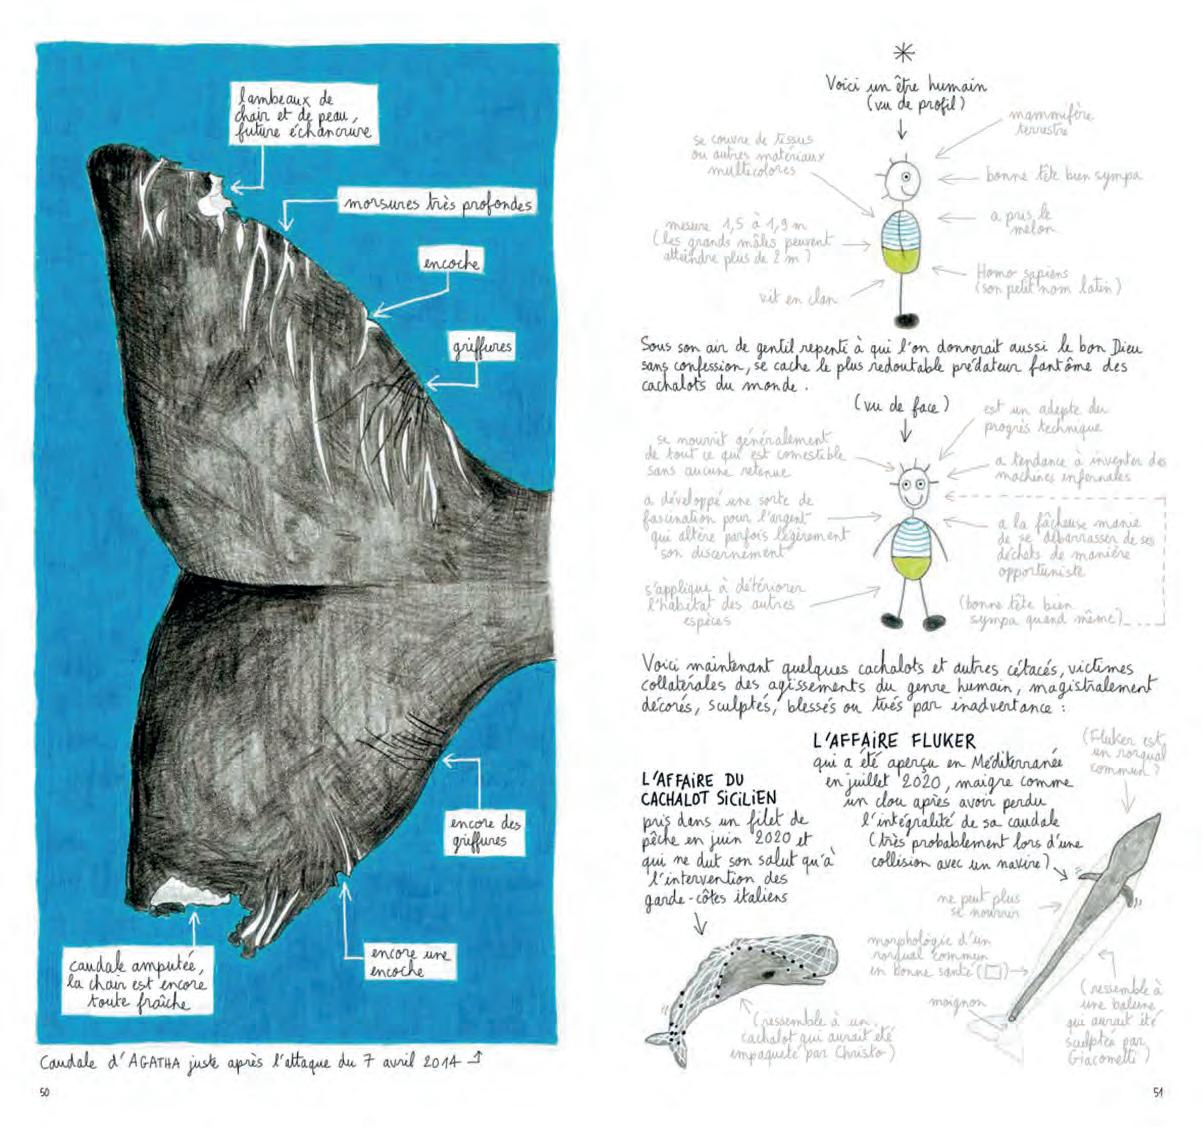 lambeaux de
chair et de peau,
future échancrure
morsures très profondes
encoche
griffures
encore des
griffures
encore une
encoche
caudale amputée,
la chair est encore
toute fraîche
Caudale d'AGATHA juste après l'attaque du 7 avril 2014
50
Voici un être humain
(vu de profil)
mammifère
terrestre
se couvre de tissus
ou autres matériaux
multicolores
bonne tête bien sympa
a pris le
melon
mesure 1,5 à 1,9 m
(les grands mâles peuvent
atteindre plus de 2 m !)
Homo sapiens
(son petit nom latin)
vit en clan
Sous son air de gentil repenti à qui l'on donnerait aussi le bon Dieu
sans confession, se cache le plus redoutable prédateur fantôme des
cachalots du monde.
(vu de face)
est un adepte du
progrès technique
se nourrit généralement
de tout ce qui est comestible
sans aucune retenue
a tendance à inventer des
machines infernales
a développé une sorte de
fascination pour l'argent
qui altère parfois légèrement
son discernement
a la fâcheuse manie
de se débarrasser de ses
déchets de manière
opportuniste
s'applique à détériorer
l'habitat des autres
espèces
(bonne tête bien
sympa quand même)
Voici maintenant quelques cachalots et autres cétacés, victimes
collatérales des agissements du genre humain, magistralement
décorés, sculptés, blessés ou tués par inadvertance :
L'AFFAIRE DU
CACHALOT SICILIEN
pris dans un filet de
pêche en juin 2020 et
qui ne dut son salut qu'à
l'intervention des
garde-côtes italiens
(ressemble à un
cachalot qui aurait été
empaqueté par Christo)
L'AFFAIRE FLUKER
qui a été aperçu en Méditerranée
en juillet 2020, maigre comme
un clou après avoir perdu
l'intégralité de sa caudale
(très probablement lors d'une
collision avec un navire)
(Fluker est
un rorqual
commun !)
ne peut plus
se nourrir
morphologie d'un
rorqual commun
en bonne santé
moignon
(ressemble à
une baleine
qui aurait été
sculptée par
Giacometti)
51